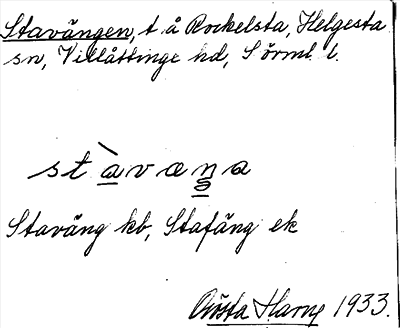 Stavängen, t å Rockelsta, Helgesta
sn, Villåttinge hd, Sörml. l.
stàvæŋa
Staväng kb, Stafäng ek
Gösta Harne 1933.